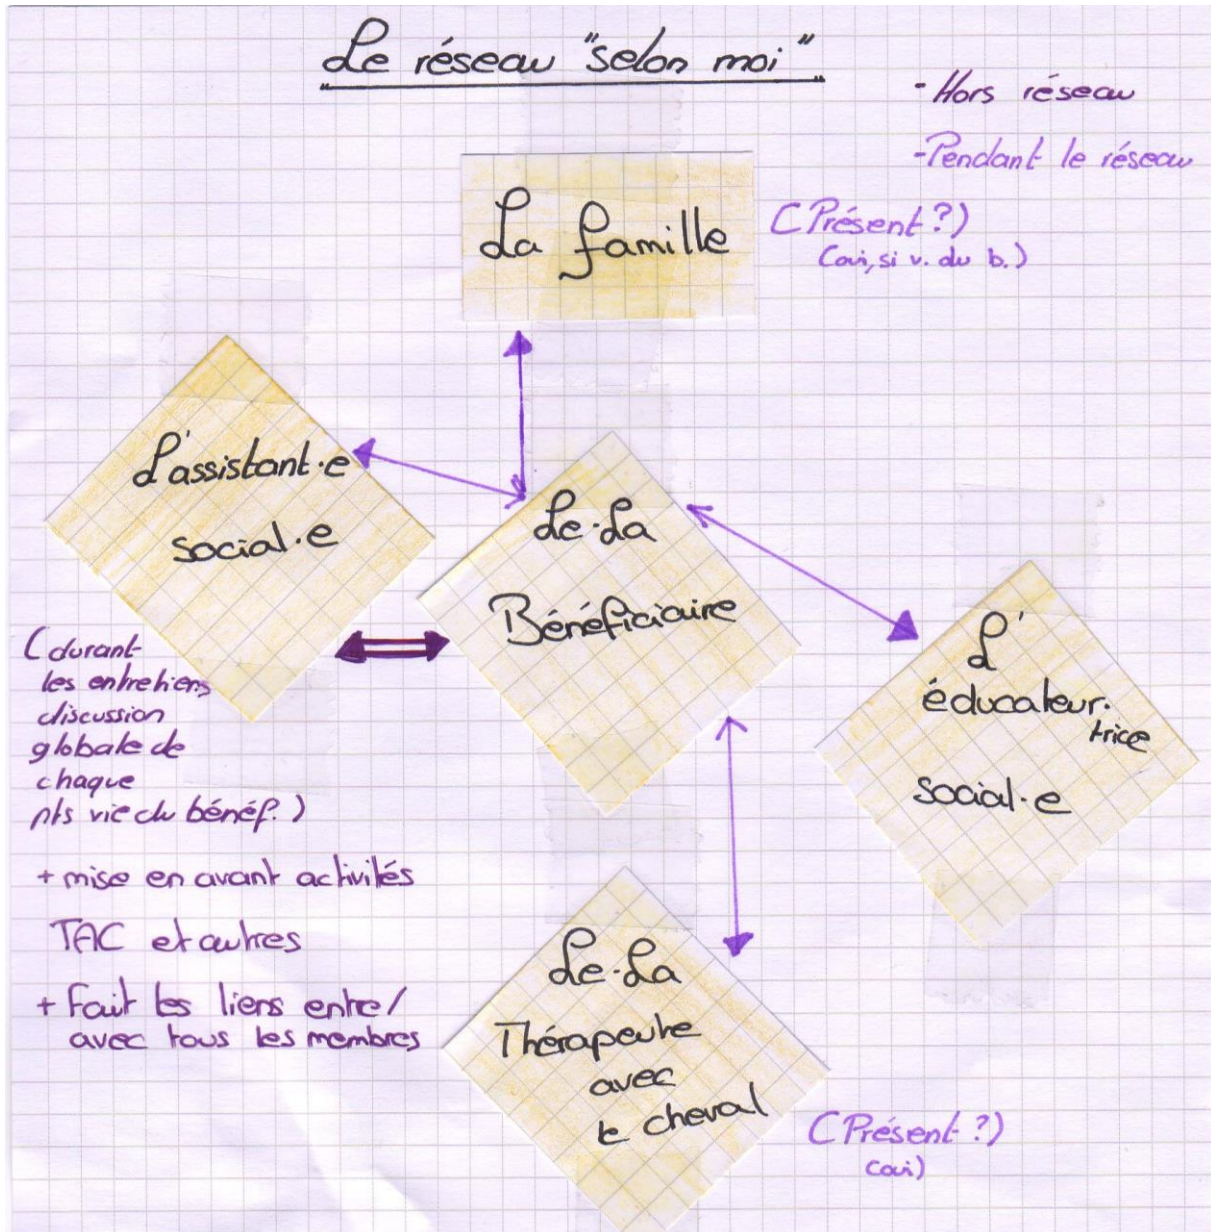 Le réseau "selon moi"
- Hors réseau
- Pendant le réseau
La famille
(Présent ?)
(oui, si v. du b.)
L'assistant·e
social·e
Le·La
Bénéficiaire
L'
éducateur·
trice
social·e
(durant
les entretiens
discussion
globale de
chaque
pts vie du bénéf.)
+ mise en avant activités
TAC et autres
+ Fait les liens entre/
avec tous les membres
Le·La
Thérapeute
avec
le cheval
(Présent ?)
(oui)